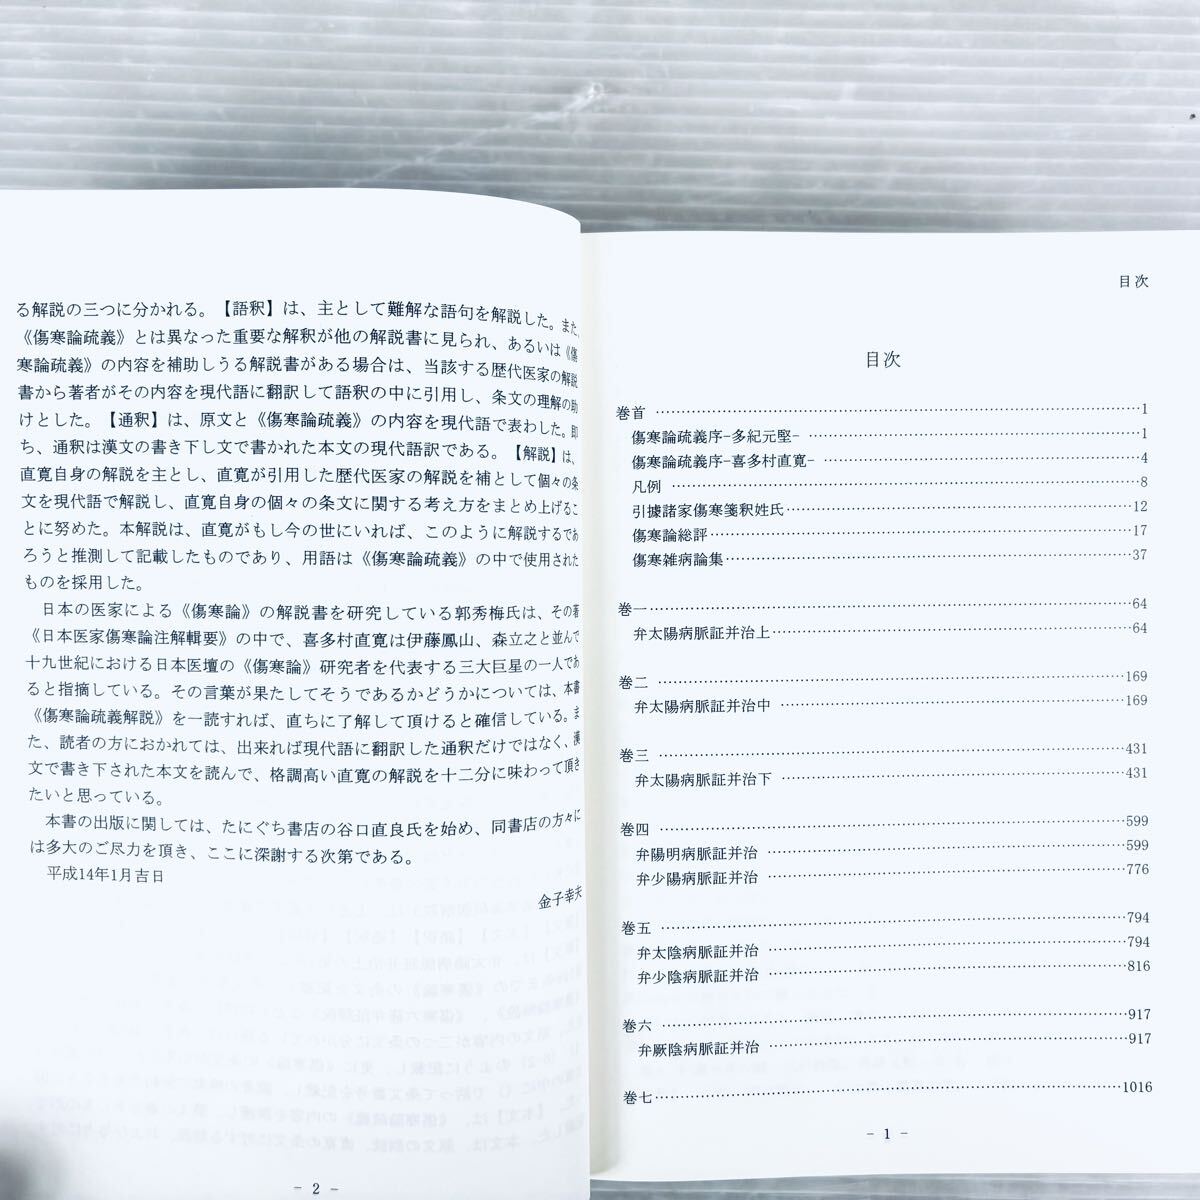 る解説の三つに分かれる。【語釈】は、主として難解な語句を解説した。また、
《傷寒論疏義》とは異なった重要な解釈が他の解説書に見られ、あるいは《傷
寒論疏義》の内容を補助しうる解説書がある場合は、当該する歴代医家の解説
書から著者がその内容を現代語に翻訳して語釈の中に引用し、条文の理解の助
けとした。【通釈】は、原文と《傷寒論疏義》の内容を現代語で表わした。即
ち、通釈は漢文の書き下し文で書かれた本文の現代語訳である。【解説】は、
直寛自身の解説を主とし、直寛が引用した歴代医家の解説を補として個々の条
文を現代語で解説し、直寛自身の個々の条文に関する考え方をまとめ上げるこ
とに努めた。本解説は、直寛がもし今の世にいれば、このように解説するであ
ろうと推測して記載したものであり、用語は《傷寒論疏義》の中で使用された
ものを採用した。
日本の医家による《傷寒論》の解説書を研究している郭秀梅氏は、その著
《日本医家傷寒論注解輯要》の中で、喜多村直寛は伊藤鳳山、森立之と並んで
十九世紀における日本医壇の《傷寒論》研究者を代表する三大巨星の一人であ
ると指摘している。その言葉が果たしてそうであるかどうかについては、本書
《傷寒論疏義解説》を一読すれば、直ちに了解して頂けると確信している。ま
た、読者の方におかれては、出来れば現代語に翻訳した通釈だけではなく、漢
文で書き下された本文を読んで、格調高い直寛の解説を十二分に味わって頂き
たいと思っている。
本書の出版に関しては、たにぐち書店の谷口直良氏を始め、同書店の方々に
は多大のご尽力を頂き、ここに深謝する次第である。
平成14年1月吉日
金子幸夫
- 2 -
目次
目次
巻首 ……… 1
傷寒論疏義序−多紀元堅− ……… 1
傷寒論疏義序−喜多村直寛− ……… 4
凡例 ……… 8
引據諸家傷寒箋釈姓氏 ……… 12
傷寒論総評 ……… 17
傷寒雑病論集 ……… 37
巻一 ……… 64
弁太陽病脈証并治上 ……… 64
巻二 ……… 169
弁太陽病脈証并治中 ……… 169
巻三 ……… 431
弁太陽病脈証并治下 ……… 431
巻四 ……… 599
弁陽明病脈証并治 ……… 599
弁少陽病脈証并治 ……… 776
巻五 ……… 794
弁太陰病脈証并治 ……… 794
弁少陰病脈証并治 ……… 816
巻六 ……… 917
弁厥陰病脈証并治 ……… 917
巻七 ……… 1016
- 1 -